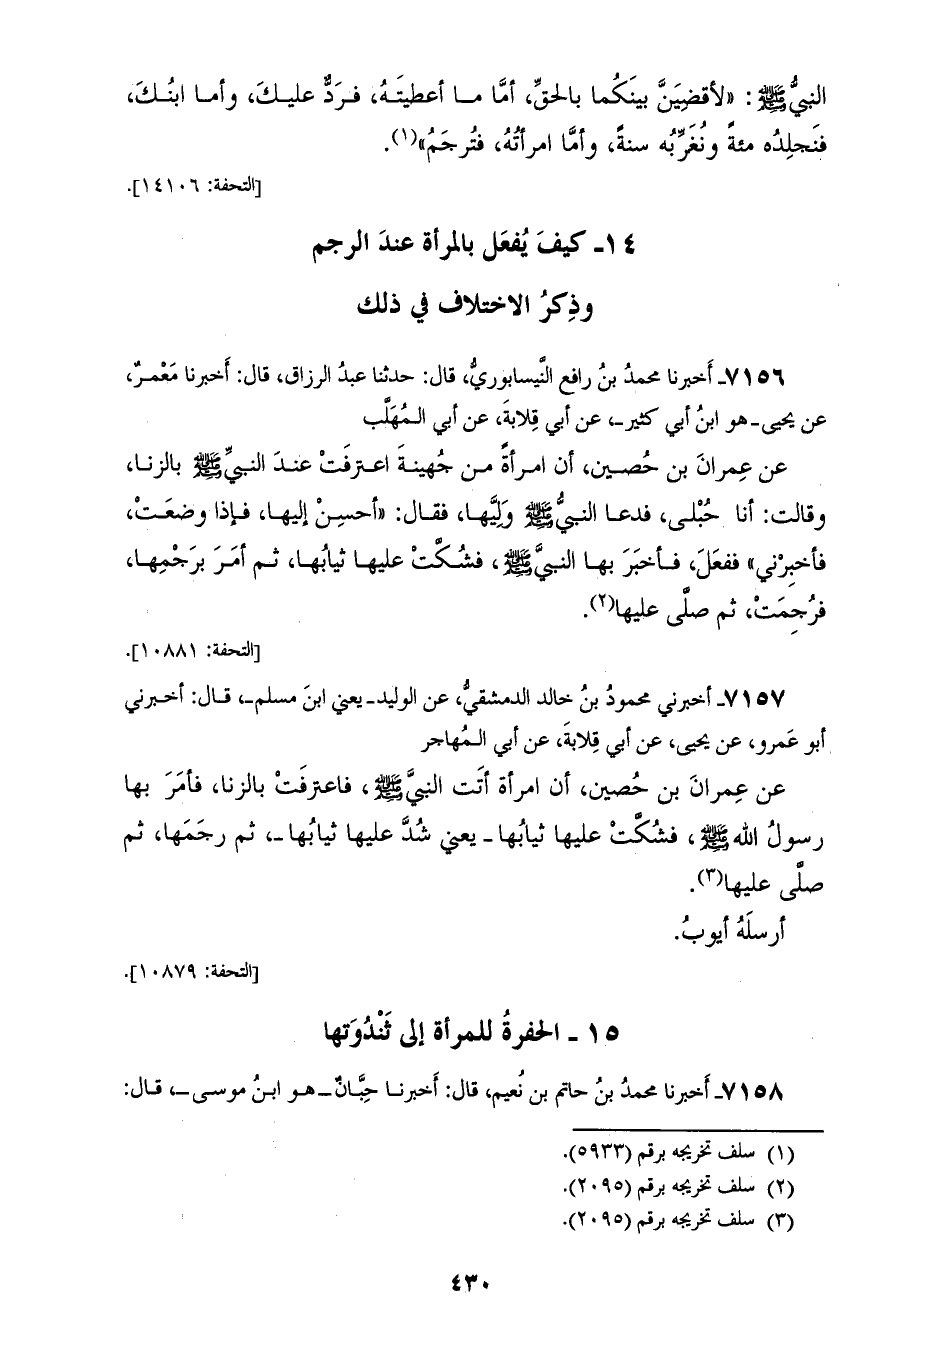 النبيُّ ﷺ: «لأقضِيَنَّ بينَكُما بالحقِّ، أمَّا ما أعطيتَهُ، فردٌّ عليكَ، وأما ابنُكَ،
فنَجلِدُه مئةً ونُغَرِّبُه سنةً، وأمَّا امرأتُهُ، فتُرجَمُ»(١).
[التحفة: ١٤١٠٦].
١٤- كيفَ يُفعَل بالمرأة عندَ الرجم
وذِكرُ الاختلاف في ذلك
٧١٥٦- أخبرنا محمدُ بنُ رافع النَّيسابوريُّ، قال: حدثنا عبدُ الرزاق، قال: أخبرنا مَعْمرٌ،
عن يحيى -هو ابنُ أبي كثير-، عن أبي قِلابةَ، عن أبي المُهَلَّب
عن عِمرانَ بن حُصين، أن امرأةً من جُهينةَ اعترفَتْ عندَ النبيِّ ﷺ بالزنا،
وقالت: أنا حُبْلى، فدعا النبيُّ ﷺ وَلِيَّها، فقال: «أحسِنْ إليها، فإذا وضعَتْ،
فأخبِرْني» ففعَلَ، فأخبَرَ بها النبيَّ ﷺ، فشُكَّتْ عليها ثيابُها، ثم أمَرَ برَجْمِها،
فرُجِمَتْ، ثم صلَّى عليها(٢).
[التحفة: ١٠٨٨١].
٧١٥٧- أخبرني محمودُ بنُ خالد الدمشقيُّ، عن الوليد - يعني ابنَ مسلم-، قال: أخبرني
أبو عَمرو، عن يحيى، عن أبي قِلابةَ، عن أبي المُهاجر
عن عِمرانَ بن حُصين، أن امرأة أتَت النبيَّ ﷺ، فاعترفَتْ بالزنا، فأمَرَ بها
رسولُ الله ﷺ، فشُكَّتْ عليها ثيابُها - يعني شُدَّ عليها ثيابُها -، ثم رجَمَها، ثم
صلَّى عليها(٣).
أرسلَهُ أيوبُ.
[التحفة: ١٠٨٧٩].
١٥ - الحفرةُ للمرأة إلى ثَنْدُوَتها
٧١٥٨- أخبرنا محمدُ بنُ حاتم بن نُعيم، قال: أخبرنا حِبَّانٌ - هو ابنُ موسى -، قال:
(١) سلف تخريجه برقم (٥٩٣٣).
(٢) سلف تخريجه برقم (٢٠٩٥).
(٣) سلف تخريجه برقم (٢٠٩٥).
٤٣٠